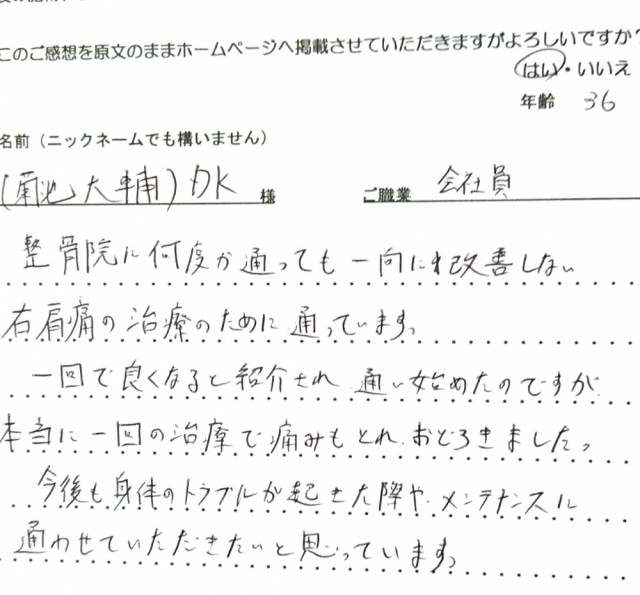 このご感想を原文のままホームページへ掲載させていただきますがよろしいですか?
はい・いいえ
年齢 36
名前（ニックネームでも構いません）
(菊池大輔) DK 様 ご職業 会社員
整骨院に何度か通っても一向に改善しない
右肩痛の治療のために通っています。
一回で良くなると紹介され通い始めたのですが
本当に一回の治療で痛みもとれ、おどろきました。
今後も身体のトラブルが起きた際や、メンテナンスに
通わせていただきたいと思っています。